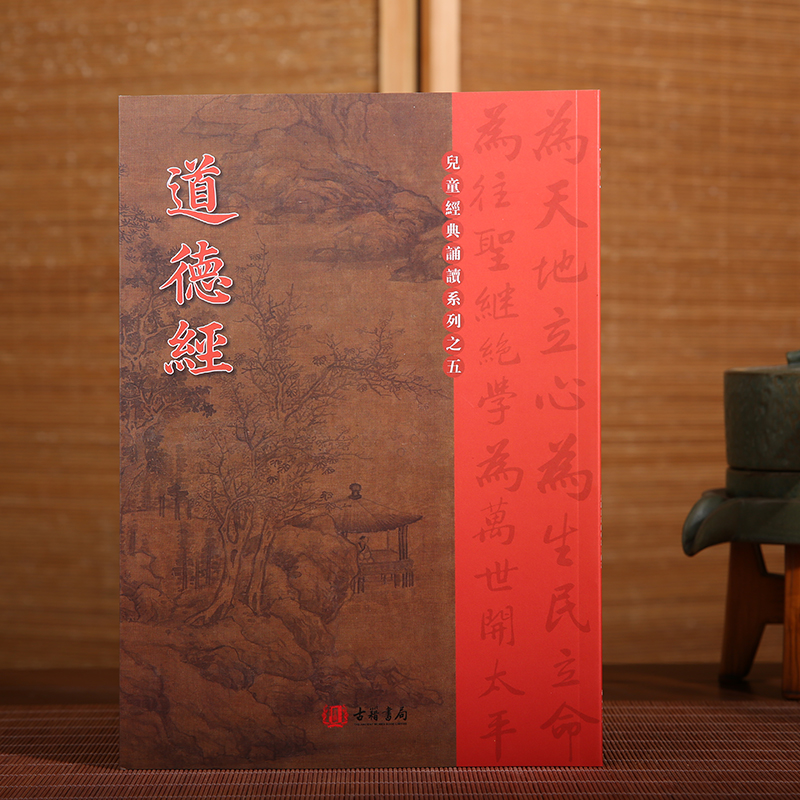 道德經
兒童經典誦讀系列之五
為天地立心為生民立命
為往聖繼絕學為萬世開太平
古籍書局